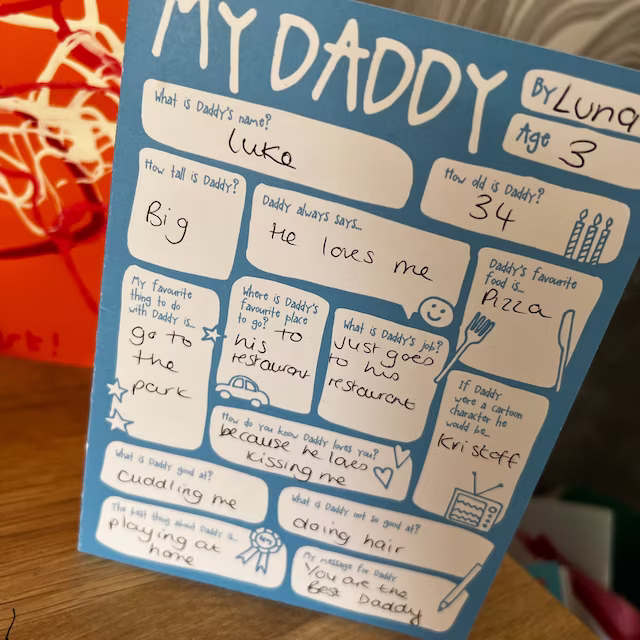 MY DADDY
By Luna
Age 3
What is Daddy's name?
Luke
How old is Daddy?
34
How tall is Daddy?
Big
Daddy always says...
He loves me
Daddy's favourite
food is...
Pizza
My favourite
thing to do
with Daddy is...
go to
the
park
Where is Daddy's
favourite place
to go?
to
his
restaurant
What is Daddy's job?
just goes
to his
restaurant
If Daddy
were a cartoon
character he
would be...
Kristoff
How do you know Daddy loves you?
because he loves
kissing me
What is Daddy good at?
cuddling me
What is Daddy not so good at?
doing hair
The best thing about Daddy is...
playing at
home
My message for Daddy
You are the
Best Daddy